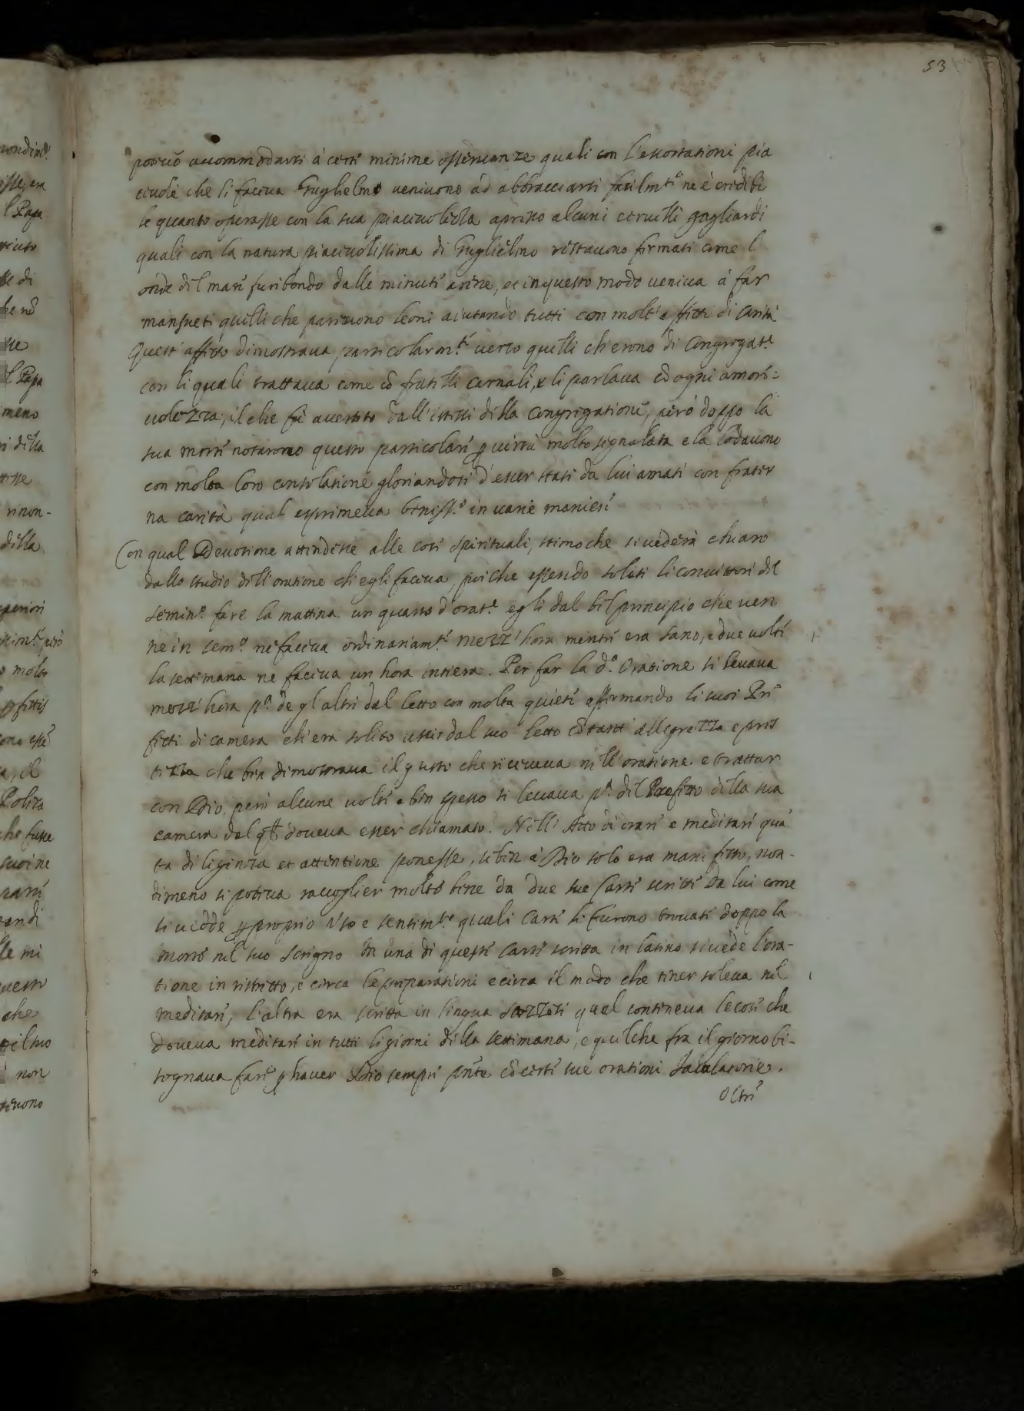 53
potevō accommodarsi à certe minime osservanze quali con l'essortationi pia
cevole che li faceva Guglielmo venivono ad abbracciarsi facilmte. ne è credibi
le quanto operasse con la sua piacevolezza apresso alcuni cervelli gagliardi
quali con la natura piacevolissima di Guglielmo restavono fermati come l
onde del mare furibondo dalle minute arene, et in questo modo veniva à far
mansueti quelli che parevono leoni aiutando tutti con molt'affetto di carità
Quest'affetto dimostrava particolarmte. verso quelli ch'erono di Congregate.
con li quali trattava come cō fratelli carnali, e li parlava cō ogni amore=
volezza; il che fù avertito dall'istessi della Congregatione, però doppo la
sua morte notarono questo particolare p virtù molto segnalata e la lodavono
con molta loro consolatione gloriandosi d'esser stati da lui amati con frater
na carità qual esprimeva beniss.o in varie maniere
Con qual Devotione attendesse alle cose spirituali, stimo che si vederà chiaro
dallo studio dell'oratione ch'egli faceva poiche essendo soliti li convittori del
Semin.o fare la mattina un quarto d'orate. egli dal bel principio che ven
ne in sem.o ne faceva ordinariamte. mezz'hora mentre era sano, e due volte
la settimana ne faceva un hora intiera. Per far la d.a Oratione si levava
mezz'hora p.a de gl'altri dal letto con molta quiete affermando li suoi Pre
fetti di camera ch'era solito uscir dal suo letto cō tant'allegrezza e pres
tezza che ben dimostrava il gusto che riceveva nell'oratione e trattar
con Dio, però alcune volte e ben spesso si levava p.a del Prefetto della sua
camera dal ql doveva esser chiamato. Nell'Atto di orare e meditare quā
ta diligenza et attentione ponesse, se ben à Dio solo era manifesto, non-
dimeno si poteva raccoglier molto bene da due sue carte scritte da lui come
si vidde p proprio uso e sentimte. quali carte si furono trovate doppo la
morte nel suo scrigno In una di queste carte scritta in latino si vede l'ora-
tione in ristretto, e circa le preparationi e circa il modo che tener soleva nel
meditare, l'altra era scritta in lingua qual conteneva le cose che
doveva meditare in tutti li giorni della settimana, e quel che fra il giorno bi-
sognava fare p haver Dio sempre pnte cō certe sue orationi Iaculatorie.
Oltre